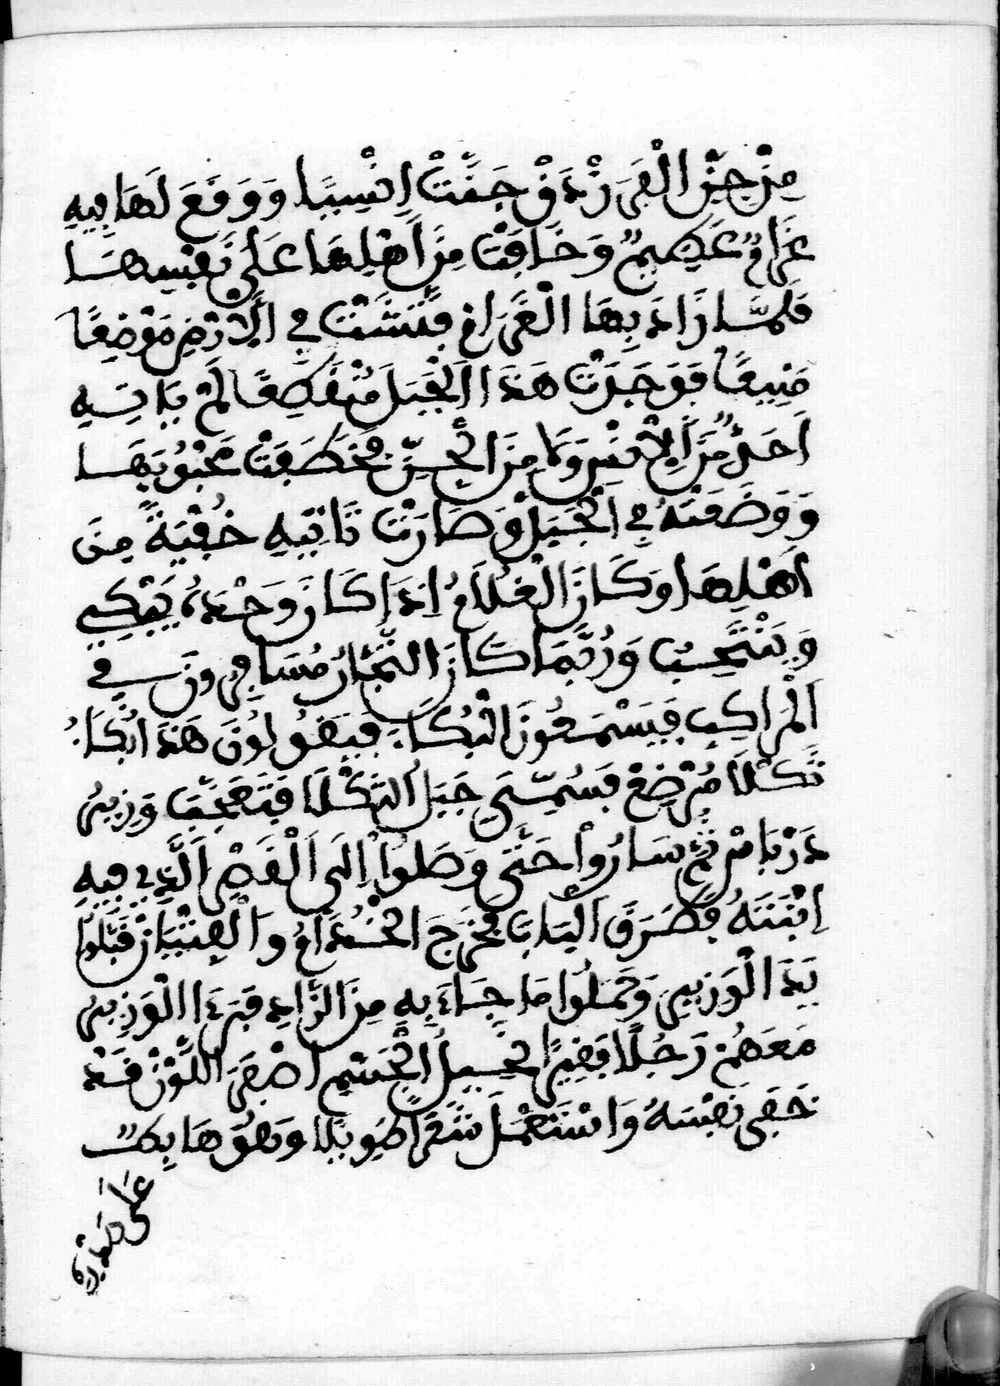 مِنْ جِنِّ الْفَرَزْدَقْ حَبَّتْ اِنْسِيًا وَوَقَعَ لَهَا فِيهِ
غَرَامٌ عَظِيمٌ وَخَافَتْ مِنْ أَهْلِهَا عَلَى نَفْسِهَا
فَلَمَّا زَادَ بِهَا الْغَرَامُ فَتَّشَتْ فِي الْأَرْضِ مَوْضِعًا
مَنِيعًا فَوَجَدَتْ هَذَا الْجَبَلَ مُنْقَطِعًا لَمْ يَاتِيهِ
أَحَدٌ مِنَ الْإِنْسِ وَلَا مِنَ الْجِنِّ فَخَطَفَتْ مَحْبُوبَهَا
وَوَضَعَتْهُ فِي الْجَبَلِ وَصَارَتْ تَاتِيهِ خُفْيَةً مِنَ
أَهْلِهَا وَكَانَ الْغُلَامُ اِذَا كَانَ وَحْدَهُ يَبْكِي
وَيَنْتَحِبُ وَرُبَّمَا كَانَ التُّجَّارُ مُسَافِرُونَ فِي
الْمَرَاكِبِ فَيَسْمَعُونَ الْبُكَاءَ فَيَقُولُونَ هَذَا بُكَاءُ
ثَكْلَا مُرْضِعْ فَسُمِّيَ جَبَلُ الثَّكْلَا فَتَعَجَّبَ وَزِيرُ
دَرْبَاسْ ثُمَّ سَارُوا حَتَّى وَصَلُوا إِلَى الْقَصْرِ الَّذِي فِيهِ
ابْنَتَهُ فَطَرَقَ الْبَابَ فَخَرَجَ الْخُدَّامُ وَالْفِتْيَانْ فَقَبَّلُوا
يَدَ الْوَزِيرِ وَحَمَلُوا مَا جَاءَ بِهِ مِنَ الزَّادِ فَرَءَا الْوَزِيرُ
مَعَهُمْ رَجُلًا فَقِيرًا نَحِيلَ الْجَسْمِ اصْفَرَ اللَّوْنْ قَدْ
خَفَى نَفْسَهُ وَاسْتَعْمَلَ شَعَرًا طَوِيلًا وَهُوَ هَابِطٌ
عَلَى صَدْرِهِ